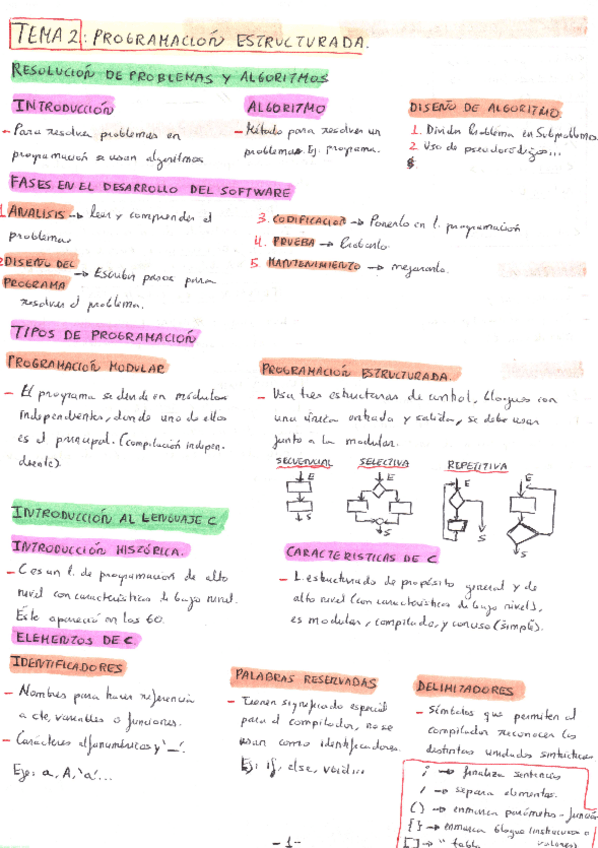 TEMA 2: PROGRAMACIÓN ESTRUCTURADA.
RESOLUCIÓN DE PROBLEMAS Y ALGORITMOS
INTRODUCCIÓN
- Para resolver problemas en
programación se usan algoritmos
ALGORITMO
- Método para resolver un
problema. Ej. programa.
DISEÑO DE ALGORITMO.
1. Dividir Problema en Subproblemas.
2. Uso de pseudocódigos...
FASES EN EL DESARROLLO DEL SOFTWARE
1. ANALISIS → leer y comprender el
problema.
2. DISEÑO DEL
PROGRAMA → Escribir pasos para
resolver el problema.
3. CODIFICACION → Ponerlo en l. programación
4. PRUEBA → Probarlo.
5. MANTENIMIENTO → mejorarlo.
TIPOS DE PROGRAMACIÓN
PROGRAMACIÓN MODULAR
- El programa se divide en módulos
independientes, donde uno de ellos
es el principal. (compilación indepen-
diente).
PROGRAMACIÓN ESTRUCTURADA.
- Usa tres estructuras de control, bloques con
una única entrada y salida, se debe usar
junto a la modular.
SECUENCIAL SELECTIVA REPETITIVA
E E E E
S S S S
INTRODUCCIÓN AL LENGUAJE C
INTRODUCCIÓN HISTÓRICA.
- C es un l. de programación de alto
nivel con características de bajo nivel.
Este apareció en los 60.
CARACTERISTICAS DE C
- L. estructurado de propósito general y de
alto nivel (con características de bajo nivel),
es modular, compilado, y conciso (simple).
ELEMENTOS DE C
IDENTIFICADORES
- Nombres para hacer referencia
a cte, variables o funciones.
- Carácteres alfanuméricos y '_'.
Ejs: a, A, 'a'...
PALABRAS RESERVADAS
- Tienen significado especial
para el compilador, no se
usan como identificadores.
Ej: if, else, void...
DELIMITADORES
- Símbolos que permiten al
compilador reconocer las
distintas unidades sintácticas
; → finaliza sentencias
, → separa elementos.
( ) → enmarca parámetros - función
{ } → enmarca bloque (instrucc o
valores)
[ ] → " tabla
- 1 -